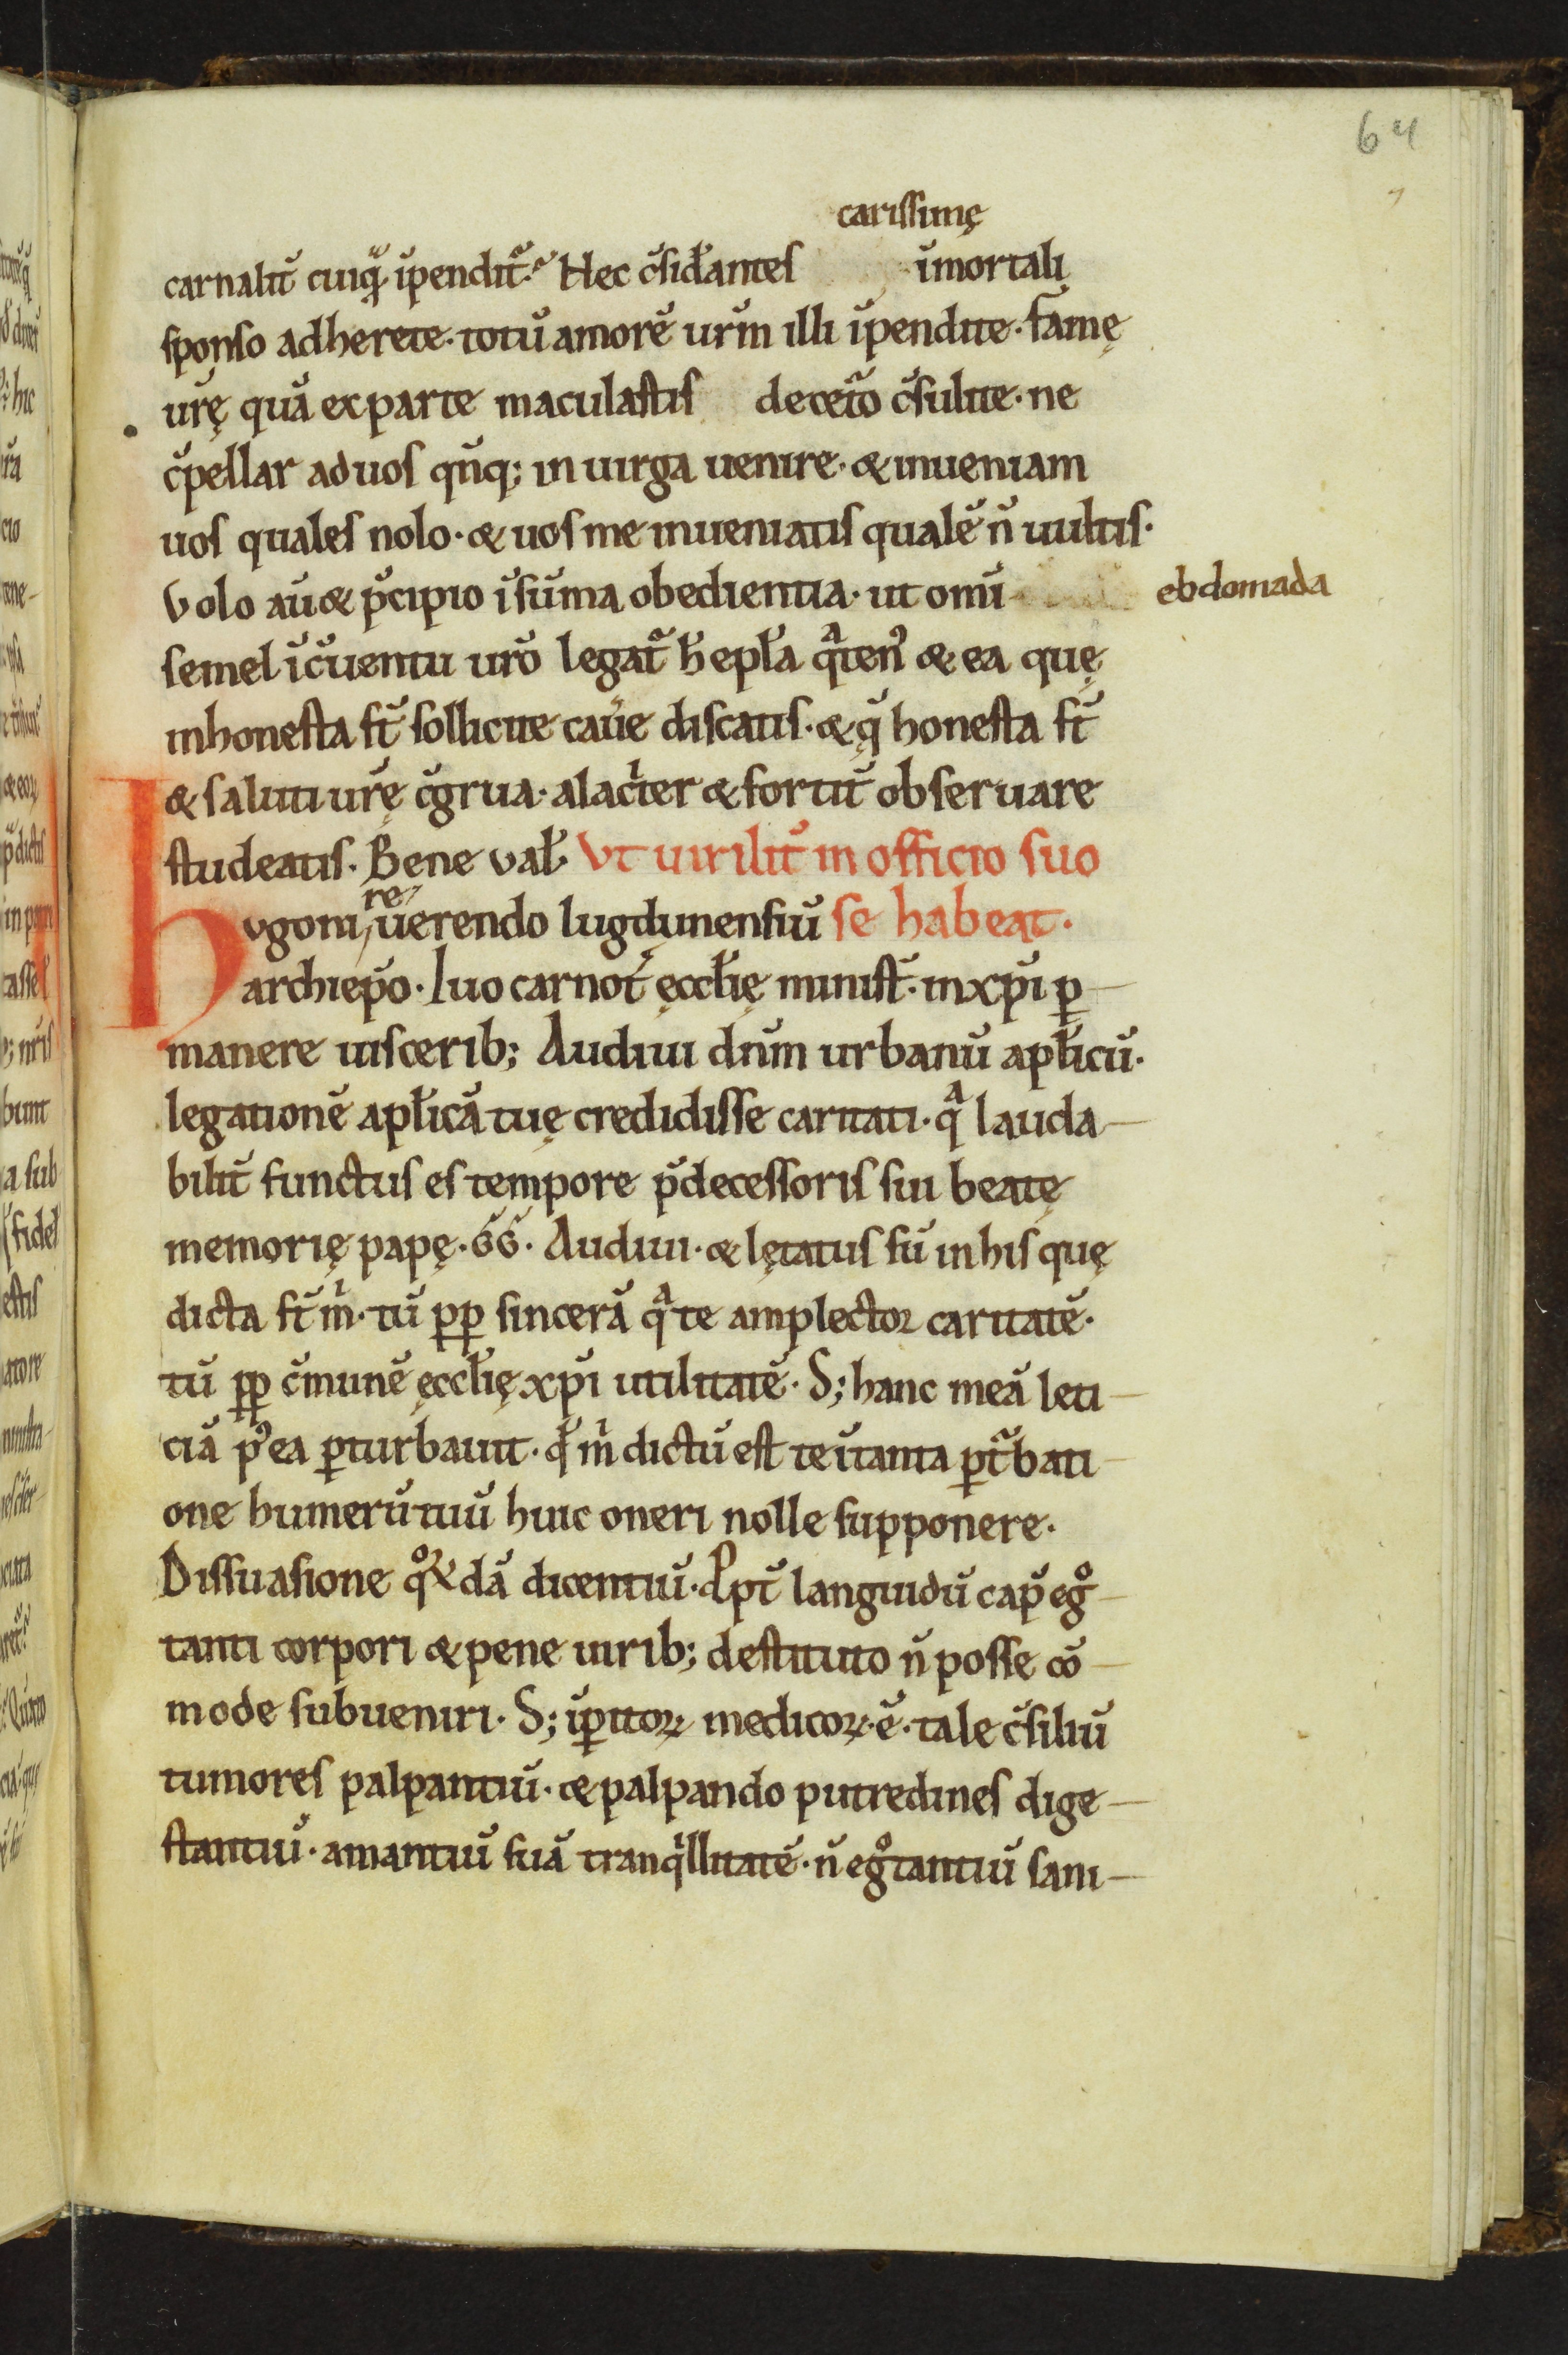 64
carissimę
carnalit̄ cuiq̄ īpendit̄ᷓ. Hec c̄sid̄antes īmortali
sponso adherete. totū amorē ur̄m illi īpendite. famę
ur̄ę quā ex parte maculastis deceto᷒ c̄sulite. ne
c̄pellar ad uos qn̄q; in uirga uenire. & inueniam
uos quales nolo. & uos me inueniatis qualē n̄ uultis.
Volo aū & p̄cipio ī sūma obedientia. ut omī ebdomada
semel ī c̄uentu ur̄o legat᷒ h̄ ep̄la qᵃten᷒ & ea quę
inhonesta st̄ sollicite cau̅e discatis. & q̨̄ honesta st̄
& saluti ur̄ę c̄grua. alacⁱter & fortit̄ obseruare
studeatis. Bene val̄ Vt uirilit̄ in officio suo
hvgoni reuerendo lugdunensiū se habeat.
archiep̄o. Iuo carnot̄ ęccl̄ię minist̄. in xp̄i ꝑ-
manere uiscerib; Audiui dn̄m urbanū apl̄icū.
legationē apl̄icā tuę credidisse caritati. qᵃ lauda-
bilit̄ functus es tempore p̄decessoris sui beatę
memorię papę .G̅G̅. Audiui. & lętatus sū in his quę
dicta st̄ mⁱ. tū ꝓp̄ sincerā qᵃ te amplector caritatē.
tū ꝓp̄ c̄munē ęccl̄ię xp̄i utilitatē. S; hanc meā leti-
ciā p᷒ea ꝑturbauit. qđ mⁱ dictū est te ī tanta ꝑt᷒bati-
one humerū tuū huic oneri nolle supponere.
Dissuasione qᵒꝝdā dicentiū. Ppt̄ languidū cap᷒ egᵒ-
tanti corpori & pene uirib; destituto n̄ posse cō-
mode subueniri. S; īꝑitoꝝ medicoꝝ .ē. tale c̄siliū
tumores palpantiū. & palpando putredines dige-
stantiū. amantiū suā tranqⁱllitatē. n̄ egᵒtantiū sani-